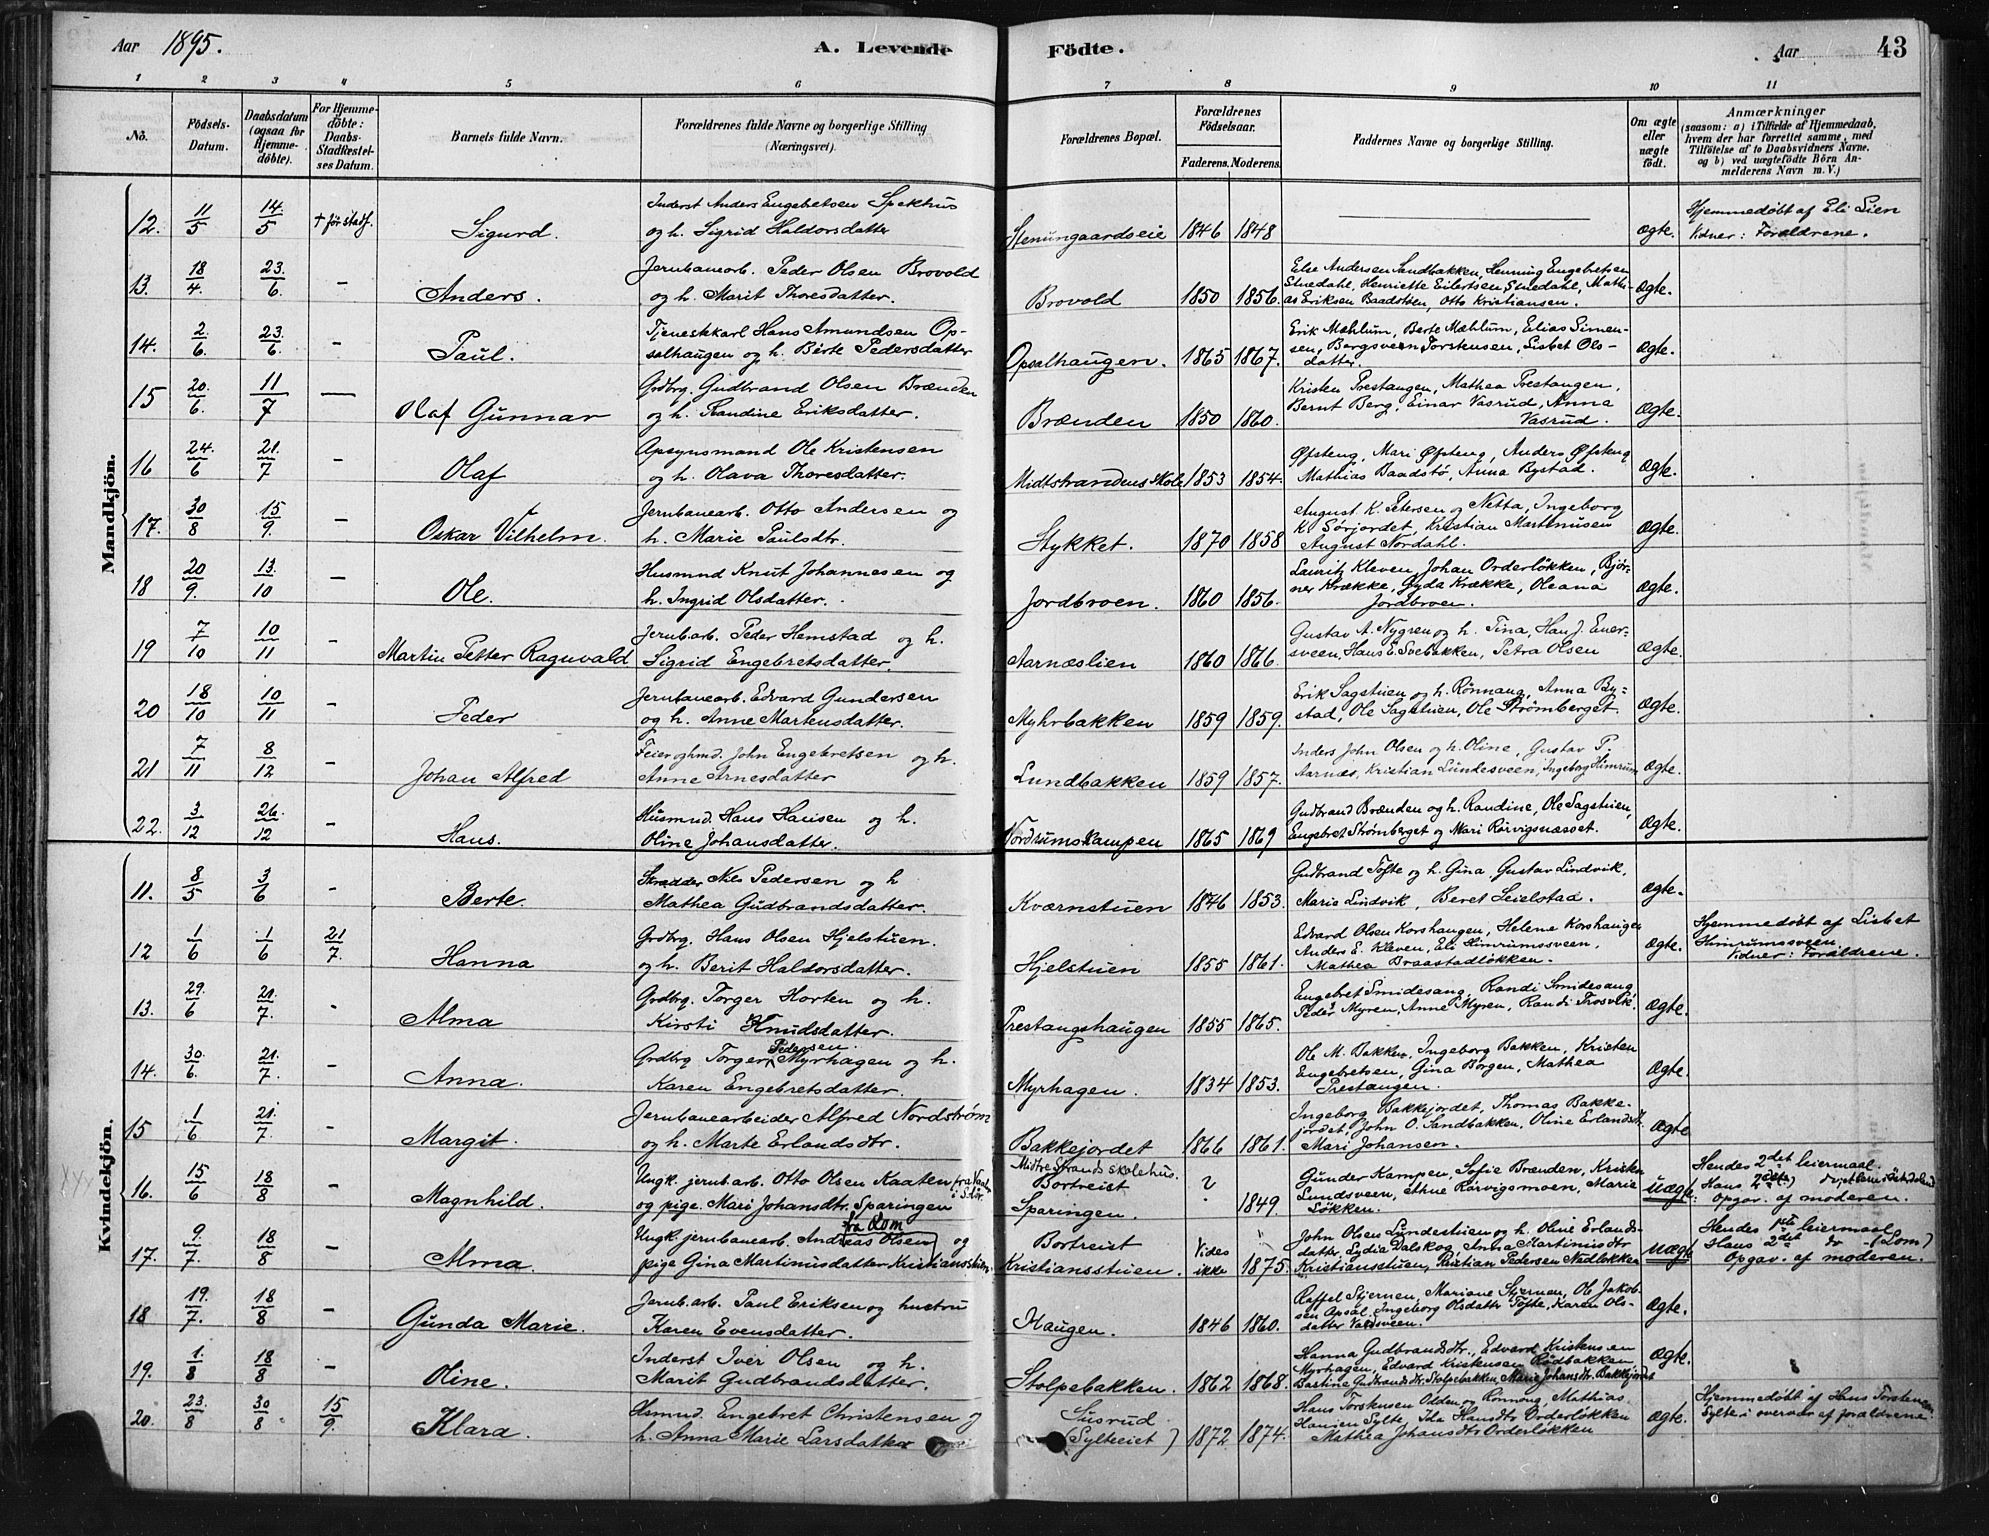 Aar 1895.
A. Levende Födte.
Aar
43
1 2 3 4 5 6 7 8 9 10 11
No. Födsels-Datum. Daabsdatum (ogsaa for Hjemme-döbte). For Hjemme-döbte: Daabs-Stadfæstel-ses Datum. Barnets fulde Navn. Forældrenes fulde Navne og borgerlige Stilling (Næringsvei). Forældrenes Bopæl. Forældrenes Födselsaar. Faderens. Moderens. Faddernes Navne og borgerlige Stilling. Om ægte eller uægte født. Anmærkninger (saasom: a) i Tilfælde af Hjemmedaab, hvem der har forrettet samme, med Tilföielse af to Daabsvidners Navne, og b) ved uægtefödte Börn Anmelderens Navn m. V.)
Mandkjön.
12. 11/5 14/5 + før stadf. Sigurd. Inderst Anders Engebretsen Spekhus
og h. Sigrid Haldorsdatter Stenungaardseie 1846 1848 ægte. Hjemmedøbt af Eli Lien
Vidner: Forældrene.
13. 18/4. 23/6. - Anders. Jernbanearb. Peder Olsen Brovold
og h. Marit Thoresdatter. Brovold 1850 1856. Else Andersen Sandbakken, Henning Engebretsen
Stuedahl, Henriette Eilertsen Stuedahl, Mathi-
as Eriksen Baadstøen, Otto Kristiansen. ægte.
14. 2/6. 23/6. - Paul. Tjenestekarl Hans Amundsen Op-
salhaugen og h. Berte Pedersdatter Opsalhaugen. 1865 1867. Erik Mæhlum, Berte Mæhlum, Elias Simen-
sen, Bergsveen Torstensen, Lisbet Ols-
datter. ægte.
15 20/6. 11/7 - Olaf Gunnar Grdbrg. Gudbrand Olsen Brænden
og h. Randine Eriksdatter. Brænden 1850 1860. Kristen Prestangen, Mathea Prestangen,
Bernt Berg, Einar Vasrud, Anna
Vasrud. ægte.
16 24/6 21/7 - Olaf Opsynsmand Ole Kristensen
og h. Olava Thoresdatter. Midtstrandens Skole 1853 1854. Øfsteng, Mari Øfsteng, Anders Øfsteng
Mathias Baadstø, Anna Bystad. ægte.
17. 30/8 15/9. - Oskar Vilhelm. Jernbanearb. Otto Andersen og
h. Marie Paulsdtr. Stykket. 1870 1858 August K. Petersen og Netta, Ingeborg
K. Sørjordet, Kristian Martinusen
August Nordahl. ægte.
18 20/9. 13/10 - Ole. Husmnd Knut Johannesen og
h. Ingrid Olsdatter. Jordbroen. 1860 1856. Lauritz Kleven, Johan Orderløkken, Bjør-
ner Krække, Gyda Krække, Oleana
Jordbroen. ægte.
19 7/10 10/11 - Martin Petter Ragnvald Jernb.arb. Peder Hemstad og h.
Sigrid Engebretsdatter. Aarnæslien 1860 1866. Gustav A. Nygren og h. Tina, Hans J. Ener-
sveen, Hans E. Svebakken, Petra Olsen ægte.
20 18/10 10/11 - Peder Jernbanearb. Edvard Gundersen
og h. Anne Martensdatter. Myhrbakken 1859 1859. Erik Sagstuen og h. Rønnaug, Anna By-
stad, Ole Sagstuen, Ole Strømberget. ægte.
21 7/11 8/12 - Johan Alfred Feier oghmd. John Engebretsen og h.
Anne Arnesdatter Lundbakken 1859 1857. Inders John Olsen og h. Oline, Gustav P.
Aarnæs, Kristian Lundesveen, Ingeborg Himrum ægte.
22. 3/12 26/12 - Hans. Husmnd. Hans Hansen og h.
Oline Johansdatter. Nordrumskampen 1865 1869 Gudbrand Brænden og h. Randine, Ole Sagstuen,
Engebret Strømberget og Mari Rørvigsnæsset. ægte.
Kvindekjön.
11. 8/5 3/6 - Berte. Skrædder Nils Pedersen og h
Mathea Gudbrandsdatter. Kværnstuen 1846 1853. Gudbrand Tofte og h. Gina, Gustav Lindvik,
Marie Lindvik, Beret Leielstad. ægte.
12 1/6 1/6 21/7. Hanna Grdbrg. Hans Olsen Hjelstuen.
og h. Berit Haldorsdatter. Hjelstuen 1855 1861. Edvard Olsen Korshaugen, Helene Korshaugen
Anders E. Kleven, Eli Himrumssveen,
Mathea Braastadløkken. ægte. Hjemmedøbt af Lisbet
Himrumssveen.
Vidner: Forældrene.
13. 29/6 21/7. - Alma Grdbrg. Torger Horten og h.
Kirsti Knudsdatter. Prestangshaugen 1855 1865. Engebret Smidesang, Randi Smidesang,
Peder Myren, Anne Myren, Randi Trosvik. ægte.
14. 30/6. 21/7. - Anna. Grdbrg Torger Pedersen Myrhagen og h.
Karen Engebretsdatter. Myrhagen. 1834 1853. Ole M. Bakken, Ingeborg Bakken, Kristen
Engebretsen, Gina Borgen, Mathea
Prestangen. ægte.
15 1/6 21/7. - Margit. Jernbanearbeider Alfred Nordstrøm
og h. Marte Erlandsdtr. Bakkejordet 1866 1861. Ingeborg Bakkejordet, Thomas Bakke-
jordet, John O. Sandbakken, Oline Erlandsdtr.
Mari Johansen. ægte
16. 15/6 18/8 - Magnhild. Ungk. jernb.arb. Otto Olsen Kaaten
og pige. Mari Johansdtr. Sparingen Midtre Strands skolehus.
Bortreist
Sparingen. ? 1849. Gunder Kampen, Sofie Brænden, Kristen
Lundsveen, Ethne Rørvigsmoen, Marie
Løkken. uægte Hendes 2det leiermaal.
Hans 2det)
Opgav. af moderen.
17. 9/7. 18/8 - Alma. Ungk. jernbanearb. Andreas Olsen fra Lom og
pige Gina Martinusdatter Kristiansstuen. Bortreist
Kristiansstuen. Vides ikke 1875. John Olsen Lundestuen og h. Oline Erlands-
datter, Lydia Dalskog, Anna Martinusdtr
Kristiansstuen, Kristian Pedersen Nedløkken uægte Hendes 1ste leiermaal
Hans 2det do - (Lom)
Opgav. af moderen.
18 19/7. 18/8 - Gunda Marie. Jernb.arb. Paul Eriksen og hustru
Karen Evensdatter. Haugen. 1846 1860. Raffel Stjernen, Mariane Stjernen, Ole Jakob-
sen Opsal, Ingeborg Olsdatter Tofte, Karen Ols-
datter Valdsveen. ægte.
19. 1/8 18/8 - Oline. Inderst Iver Olsen og h.
Marit Gudbrandsdatter. Stolpebakken. 1862 1868. Hanna Gudbrandsdtr., Edvard Kristensen
Myrhagen, Edvard Kristensen Rødbakken,
Bastine Gudbrandsdtr. Stolpebakken, Marie Johansdtr. Bakkejordet ægte.
20. 23/8 30/8 15/9. Klara. Hsmnd. Engebret Christensen og
h. Anna Marie Larsdatter Susrud
(Sylteeiet) 1872 1874. Hans Torstensen Olden og Rønnaug, Mathias
Hansen Sylte, Ida Hansdtr Orderløkken
Mathea Johansdtr Orderløkken ægte. Hjemmedøbt af Hans Torstensen
Sylte i overvær af forældrene.